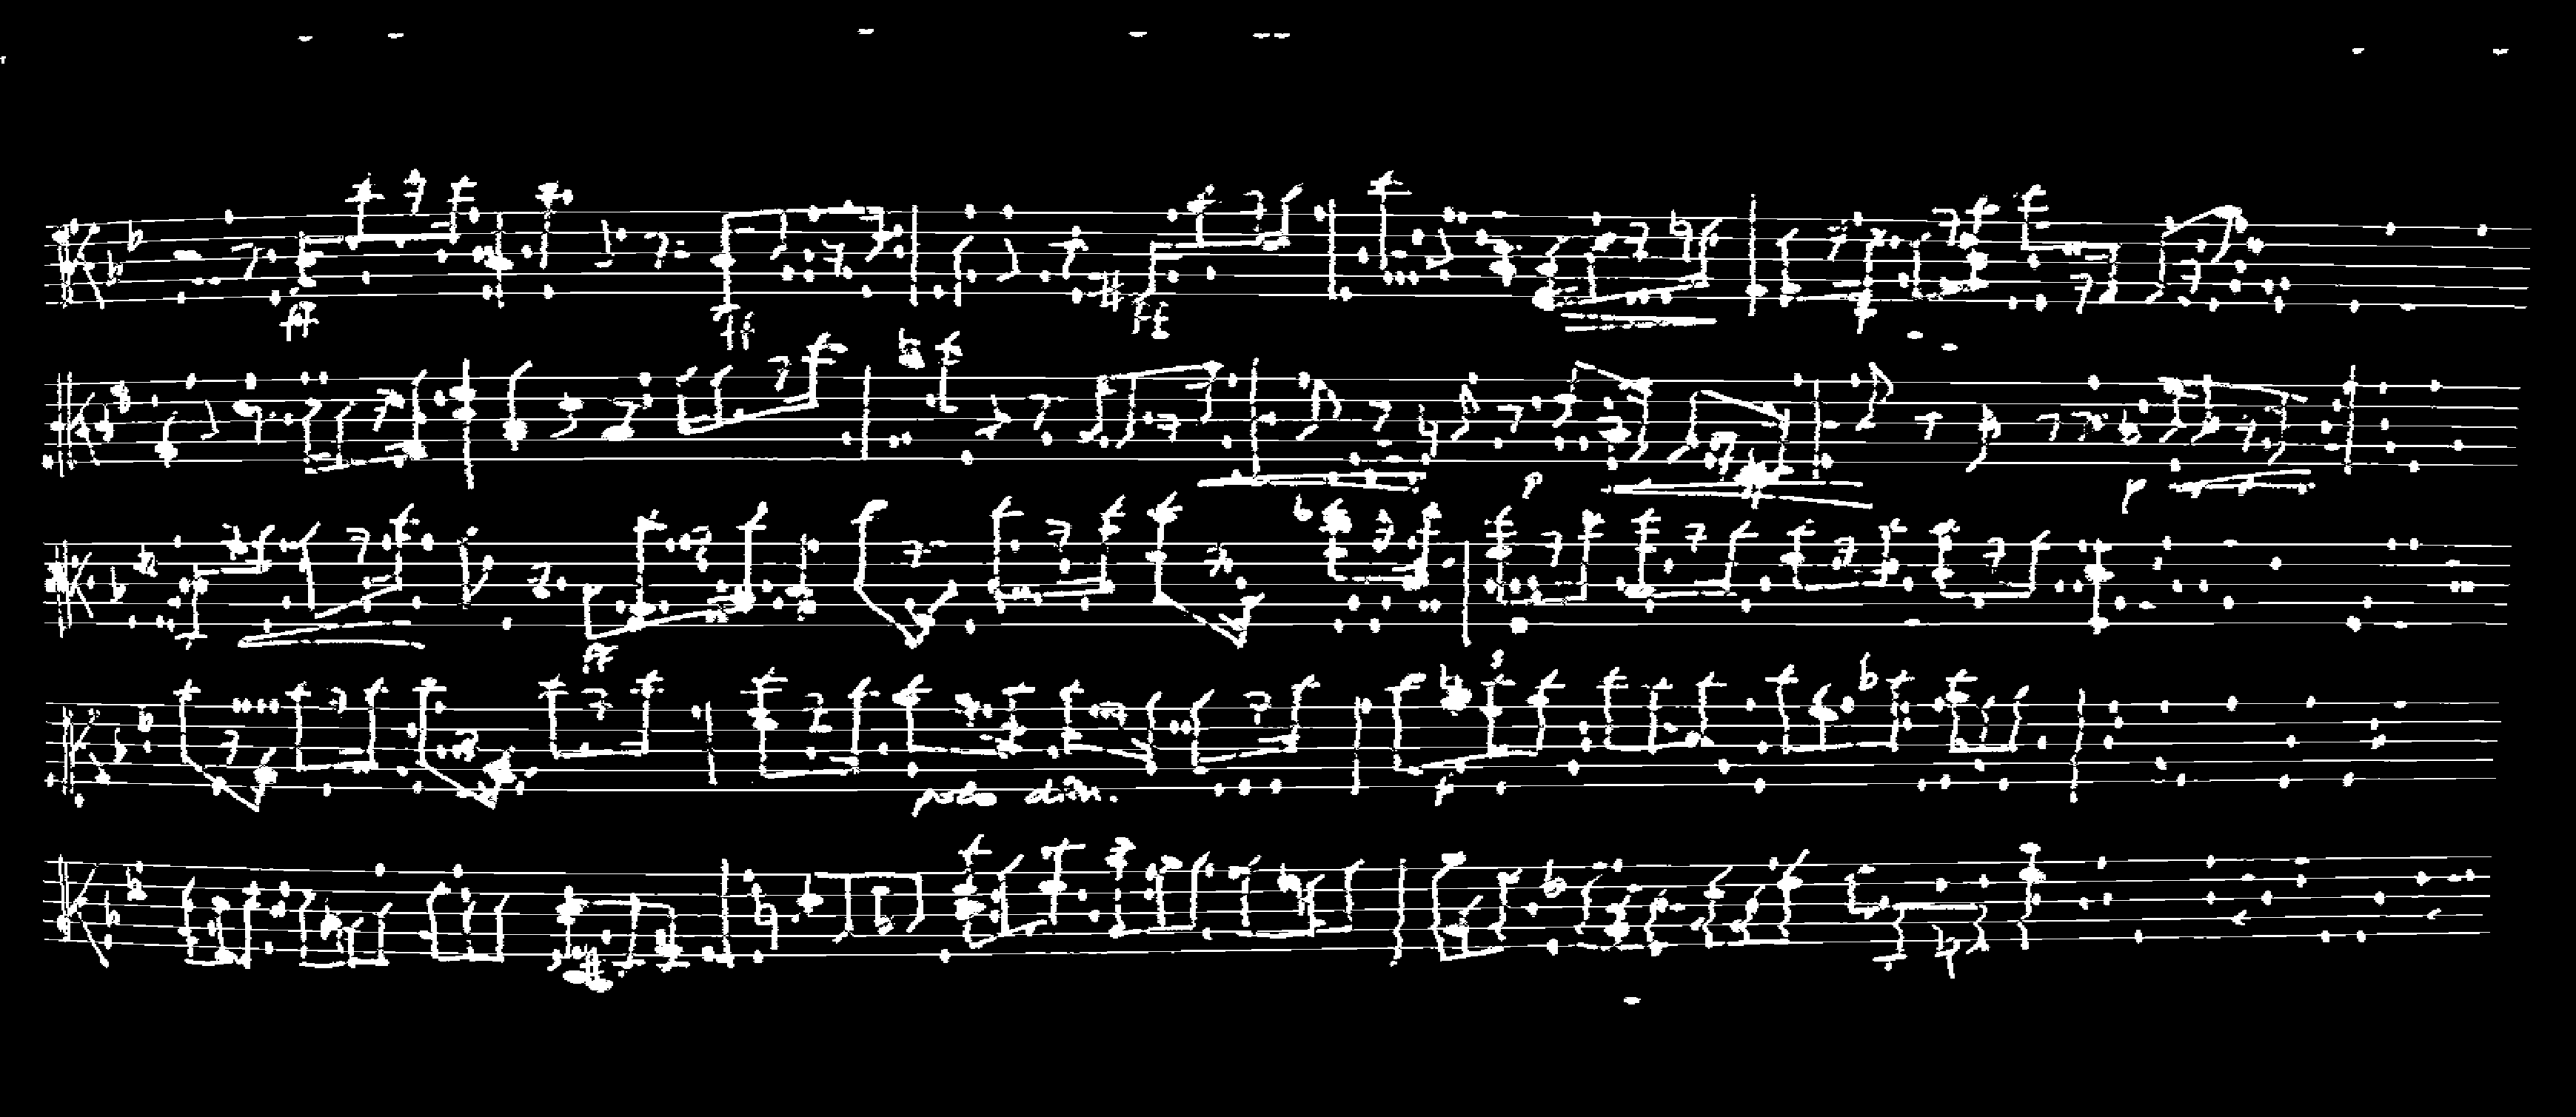 ff ff ff
p p
ff
poco dim. p